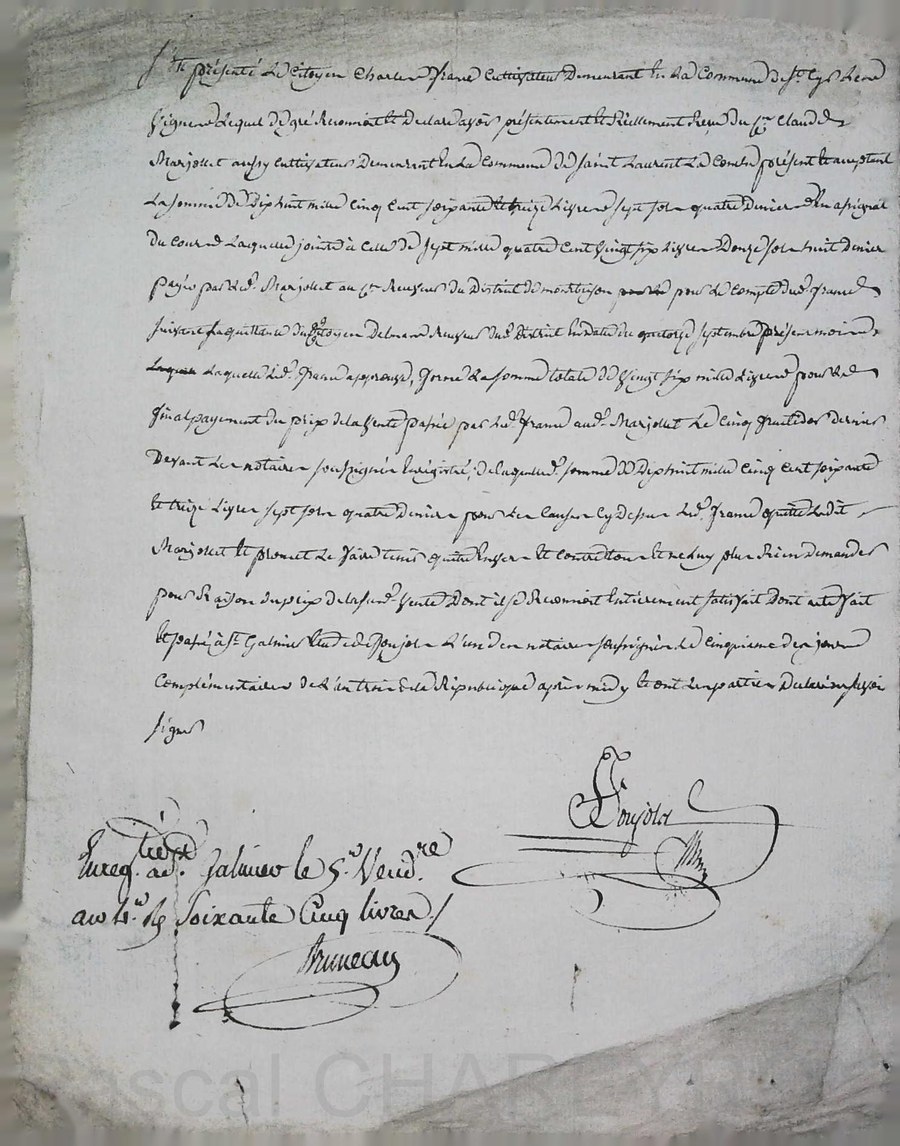 S'est présenté Le Citoyen Charles frane Cultivateur Demeurant En La Commune de St. Cyr Les
Vignes Lequel De gré Reconnoit et Declare avoir présentement et Réellement Reçu du Cn. Claude
Marjollet aussy Cultivateur Demeurant En La Commune de Saint Laurent La Conche présent et acceptant
La somme de Dixhuit mille Cinq Cent soixante et treize Livres sept sols quatre Deniers En assignat
du Cours Laquelle jointe à Celle de sept mille quatre Cent Vingt six Livres Douze sols huit Denier
payée par led. Marjollet au Cn. Receveur du District de montbrison pour Le Compte dud. frane
suivant La quittance du Citoyen Receveur dud. District En date du quatorze septembre présent mois
Laquelle led. frane approuve, forme La somme totale de Vingt six mille Livres pour Le
final payement du prix de la Vente passée par led. frane aud. Marjollet Le Cinq fructidor dernier
Devant Les notaires soussignés Enregistré, de laquelle d. somme de Dixhuit mille Cinq Cent soixante
et treize Livres sept sols quatre Deniers pour Les Causes Cy Dessus led. frane quitte Ledit
Marjollet et promet Le faire tenir quitte Envers et Contre tous et ne Luy plus Rien Demander
pour Raison du prix de la sus d. Vente Dont il se Reconnoit Entièrement satisfait Dont acte fait
et passé à St. Galmier Etude de Ponjols L'un des notaires soussignés le Cinquieme des jours
Complémentaires de L'an trois de la République après midy et ont Les parties Declaré savoir
signer
Ponjols
Enreg.tré à Galmier le 5.e Vend.re
an 4.e Rs Soixante Cinq livres /.
Bruneau
Pascal CHAREYR